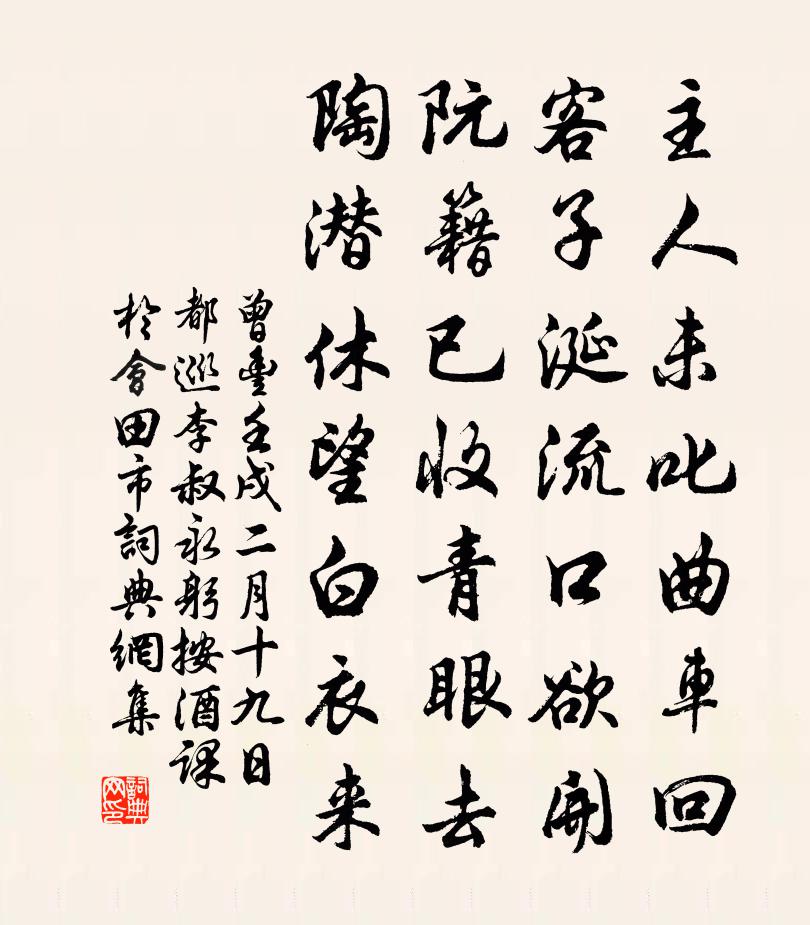 主人未叱曲車回
客子涎流口欲開
阮籍已收青眼去
陶潛休望白衣来
曾豐壬戌二月十九日
都巡李叔永躬按酒課
於會田市詞典網集
詞典
网印